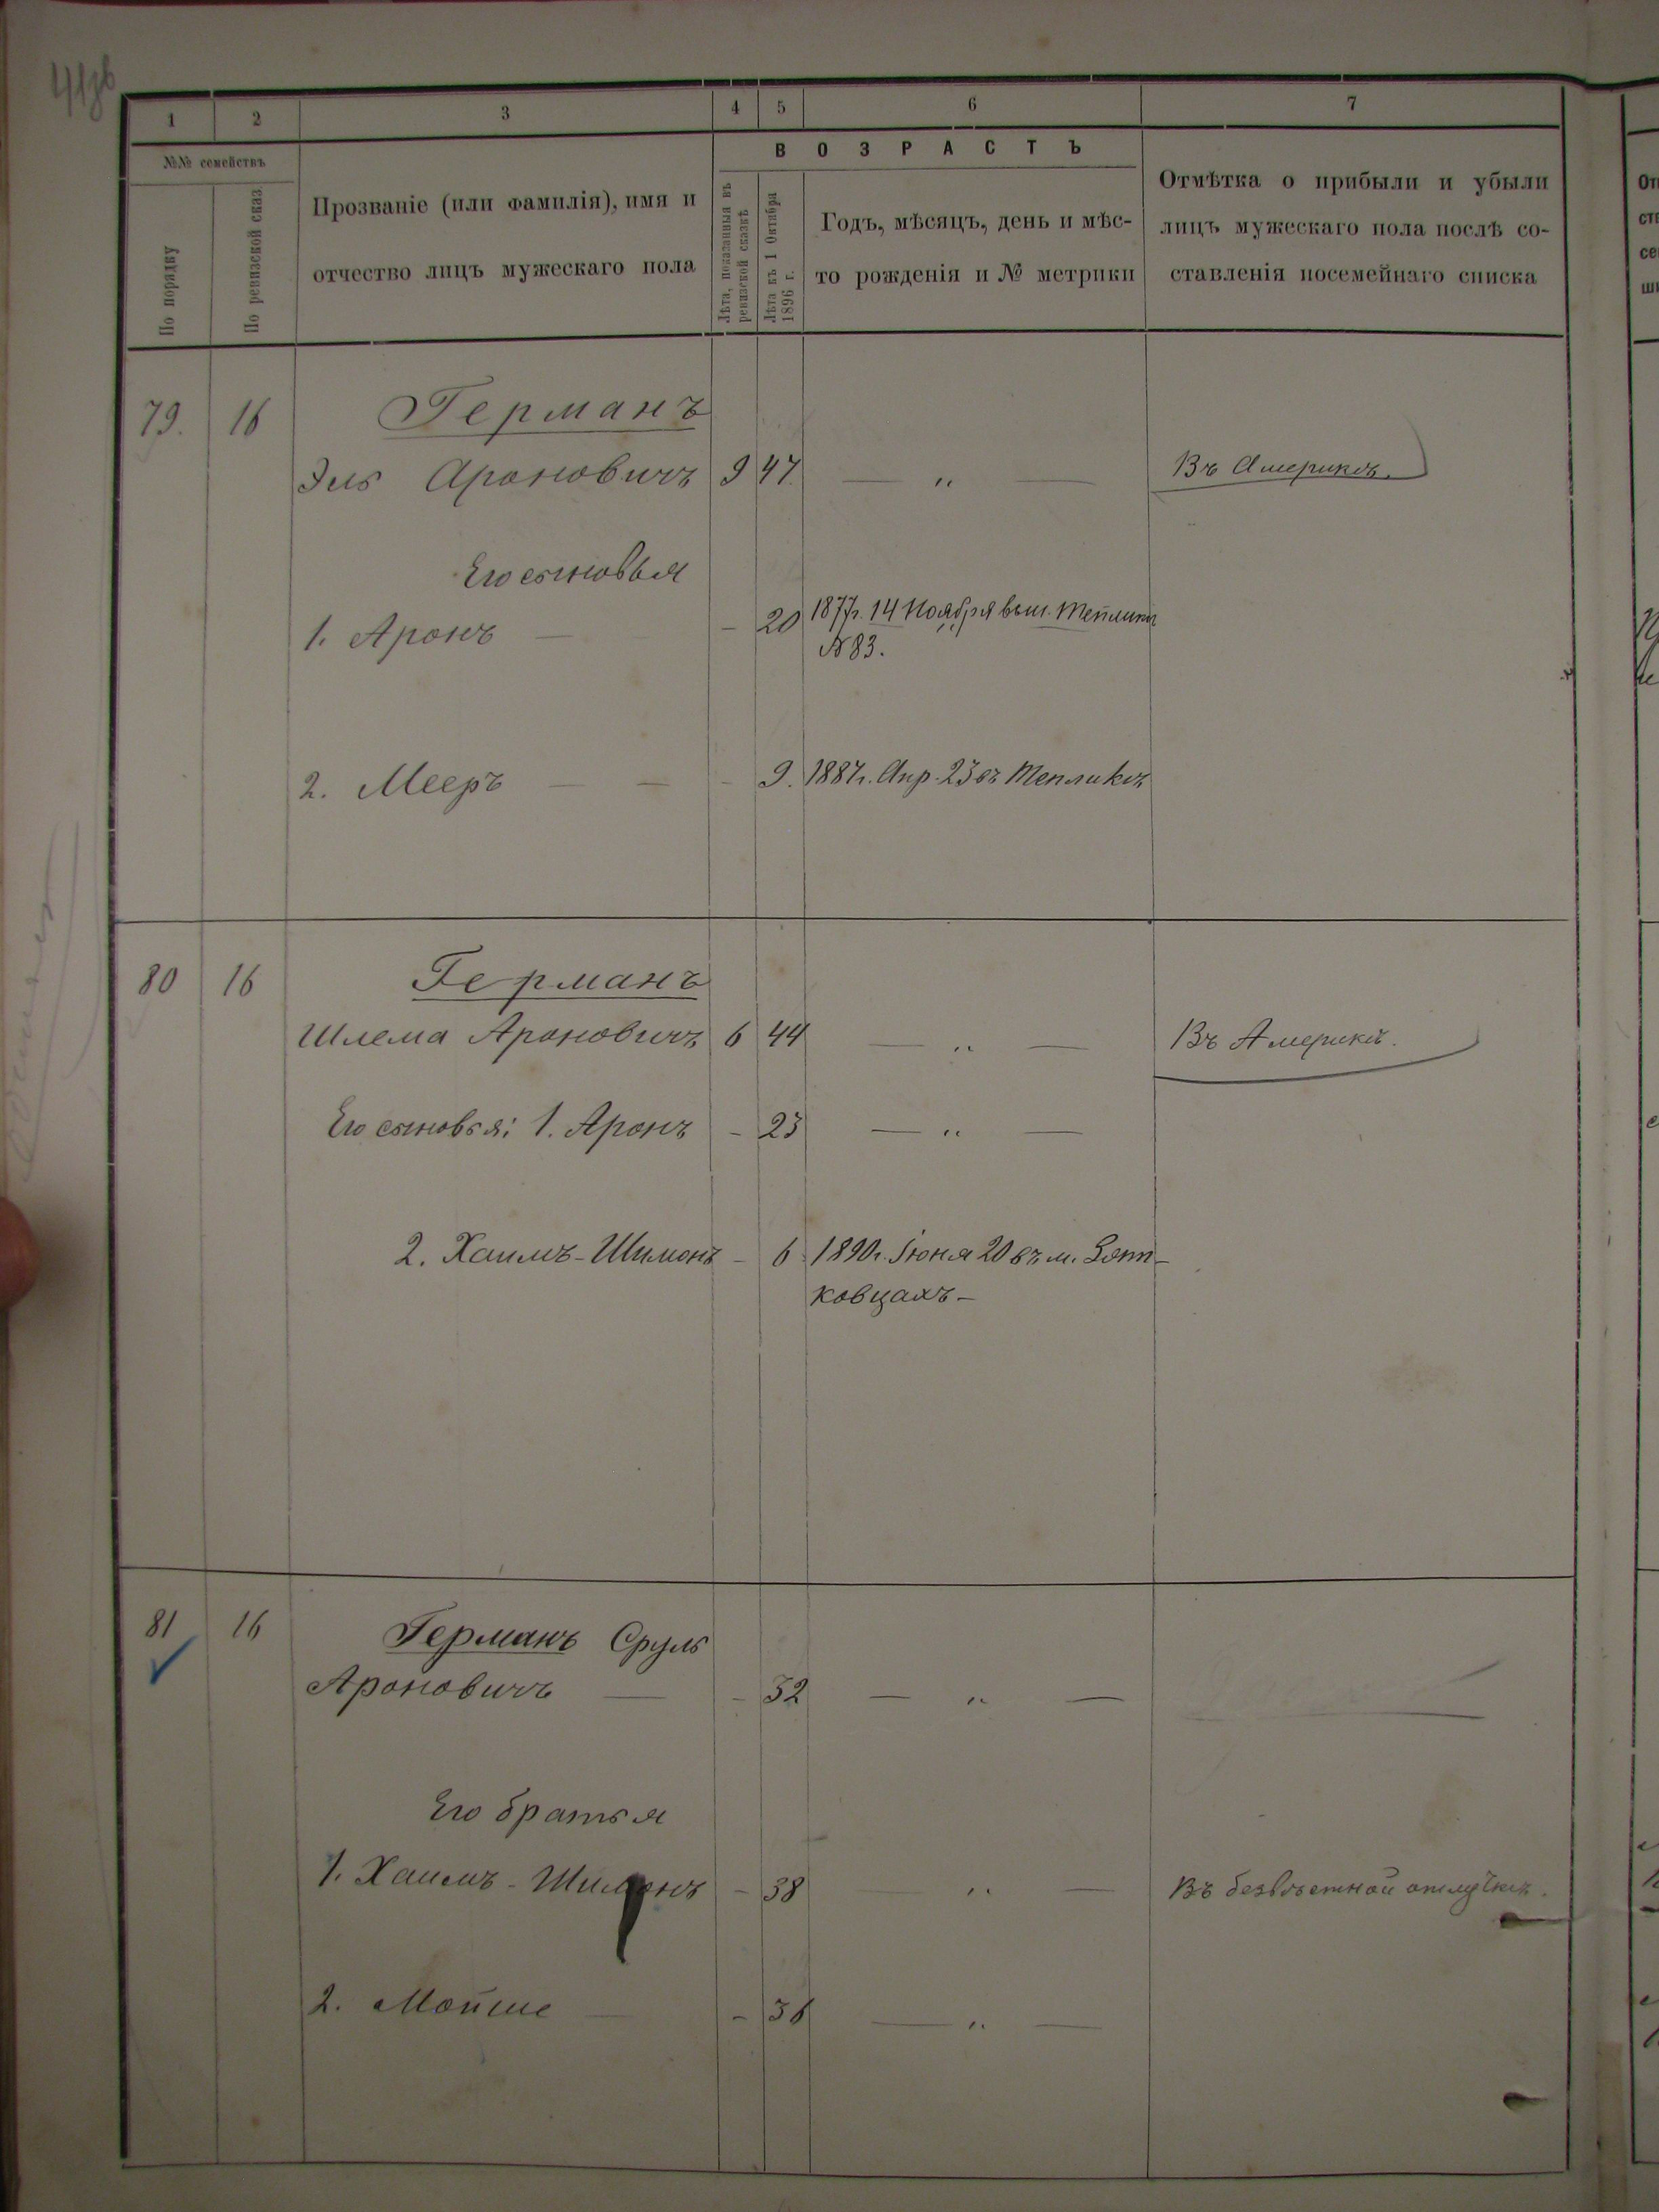 1 2 3 4 5 6 7
№№ семействъ
По порядку
По ревизской сказ
Прозваніе (или фамилія), имя и
отчество лицъ мужескаго пола
ВОЗРАСТЪ
Лѣта, показанныя въ
ревизской сказкѣ
Лѣта къ 1 Октября
1896 г.
Годъ, мѣсяцъ, день и мѣс-
то рожденія и № метрики
Отмѣтка о прибыли и убыли
лицъ мужескаго пола послѣ со-
ставленія посемейнаго списка
79. 16 Германъ
Эль Ароновичъ 9 47. — „ — Въ Америкѣ.
Его сыновья
1. Аронъ — - 20 1877г. 14 Ноября въ м. Тепликѣ
№83.
2. Мееръ — — - 9. 1887г. Апр. 23 въ Тепликѣ
80 16 Германъ
Шлема Ароновичъ 6 44 — „ — Въ Америкѣ.
Его сыновья: 1. Аронъ - 23 — „ —
2. Хаимъ-Шимонъ - 6 1890г. Іюня 20 въ м.
ковцахъ -
81 16 Германъ Сруль
Ароновичъ — - 32 — „ —
Его братья
1. Хаимъ-Шимонъ - 38 — „ — Въ безвѣстной отлучкѣ.
2. Мойше — - 36 — „ —